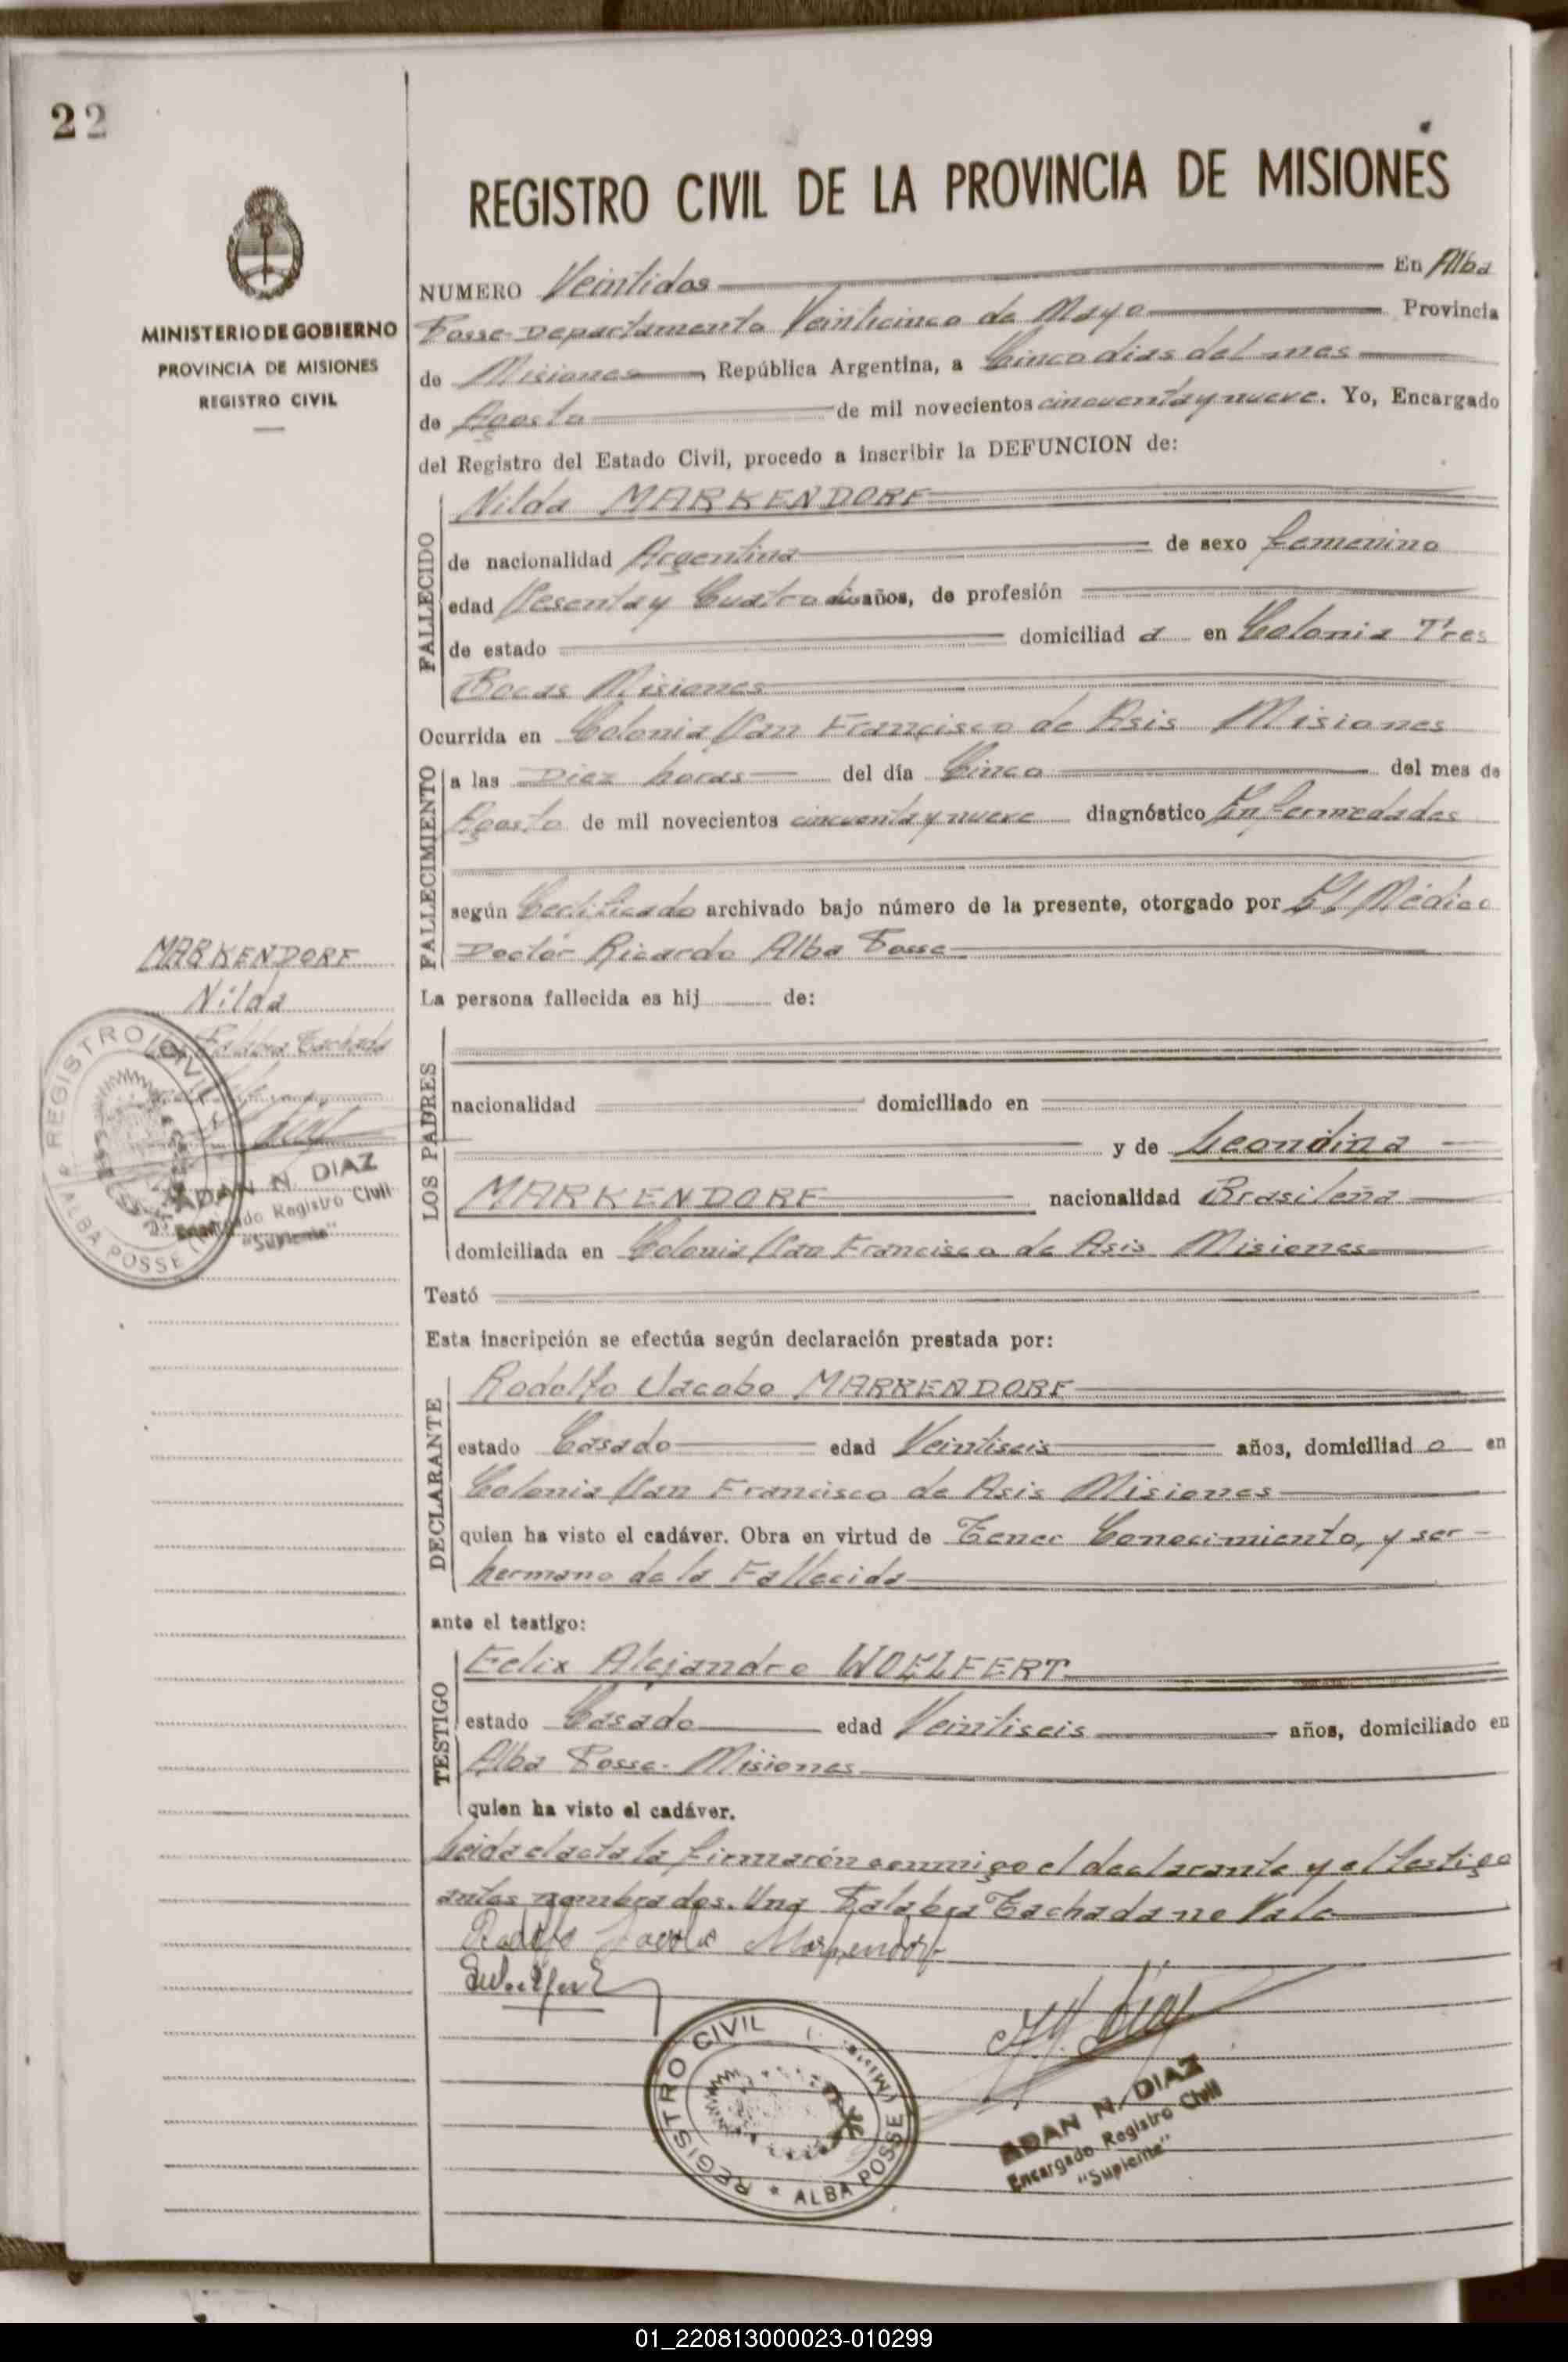 22
MINISTERIO DE GOBIERNO
PROVINCIA DE MISIONES
REGISTRO CIVIL
REGISTRO CIVIL DE LA PROVINCIA DE MISIONES
NUMERO Veintidos En Alba
Posse Departamento Veinticinco de Mayo Provincia
de Misiones, República Argentina, a Cinco dias del mes
de Agosto de mil novecientos cincuenta y nueve. Yo, Encargado
del Registro del Estado Civil, procedo a inscribir la DEFUNCION de:
FALLECIDO
Nilda MARKENDORF
de nacionalidad Argentina de sexo femenino
edad Sesenta y Cuatro dias años, de profesión
de estado domiciliad a en Colonia Tres
Bocas Misiones
Ocurrida en Colonia San Francisco de Asis Misiones
FALLECIMIENTO
a las Diez horas del día Cinco del mes de
Agosto de mil novecientos cincuenta y nueve diagnóstico Enfermedades
según Certificado archivado bajo número de la presente, otorgado por El Médico
Doctor Ricardo Alba Posse
MARKENDORF
Nilda
Palabra Tachada
REGISTRO CIVIL
ALBA POSSE
ADAN N. DIAZ
Encargado Registro Civil
"Suplente"
La persona fallecida es hij de:
LOS PADRES
nacionalidad domiciliado en
y de Leondina
MARKENDORF nacionalidad Brasileña
domiciliada en Colonia San Francisco de Asis Misiones
Testó
Esta inscripción se efectúa según declaración prestada por:
DECLARANTE
Rodolfo Jacobo MARKENDORF
estado Casado edad Veintiseis años, domiciliad o en
Colonia San Francisco de Asis Misiones
quien ha visto el cadáver. Obra en virtud de Tener Conocimiento, y ser
hermano de la Fallecida
ante el testigo:
TESTIGO
Felix Alejandro WOELFERT
estado Casado edad Veintiseis años, domiciliado en
Alba Posse - Misiones
quien ha visto el cadáver.
Leida el acta la firmarón conmigo el declarante y el testigo
antes nombrados. Una Palabra Tachada no Vale
Rodolfo Jacobo Markendorf
REGISTRO CIVIL
ALBA POSSE (Misnes.)
ADAN N. DIAZ
Encargado Registro Civil
"Suplente"
01_220813000023-010299